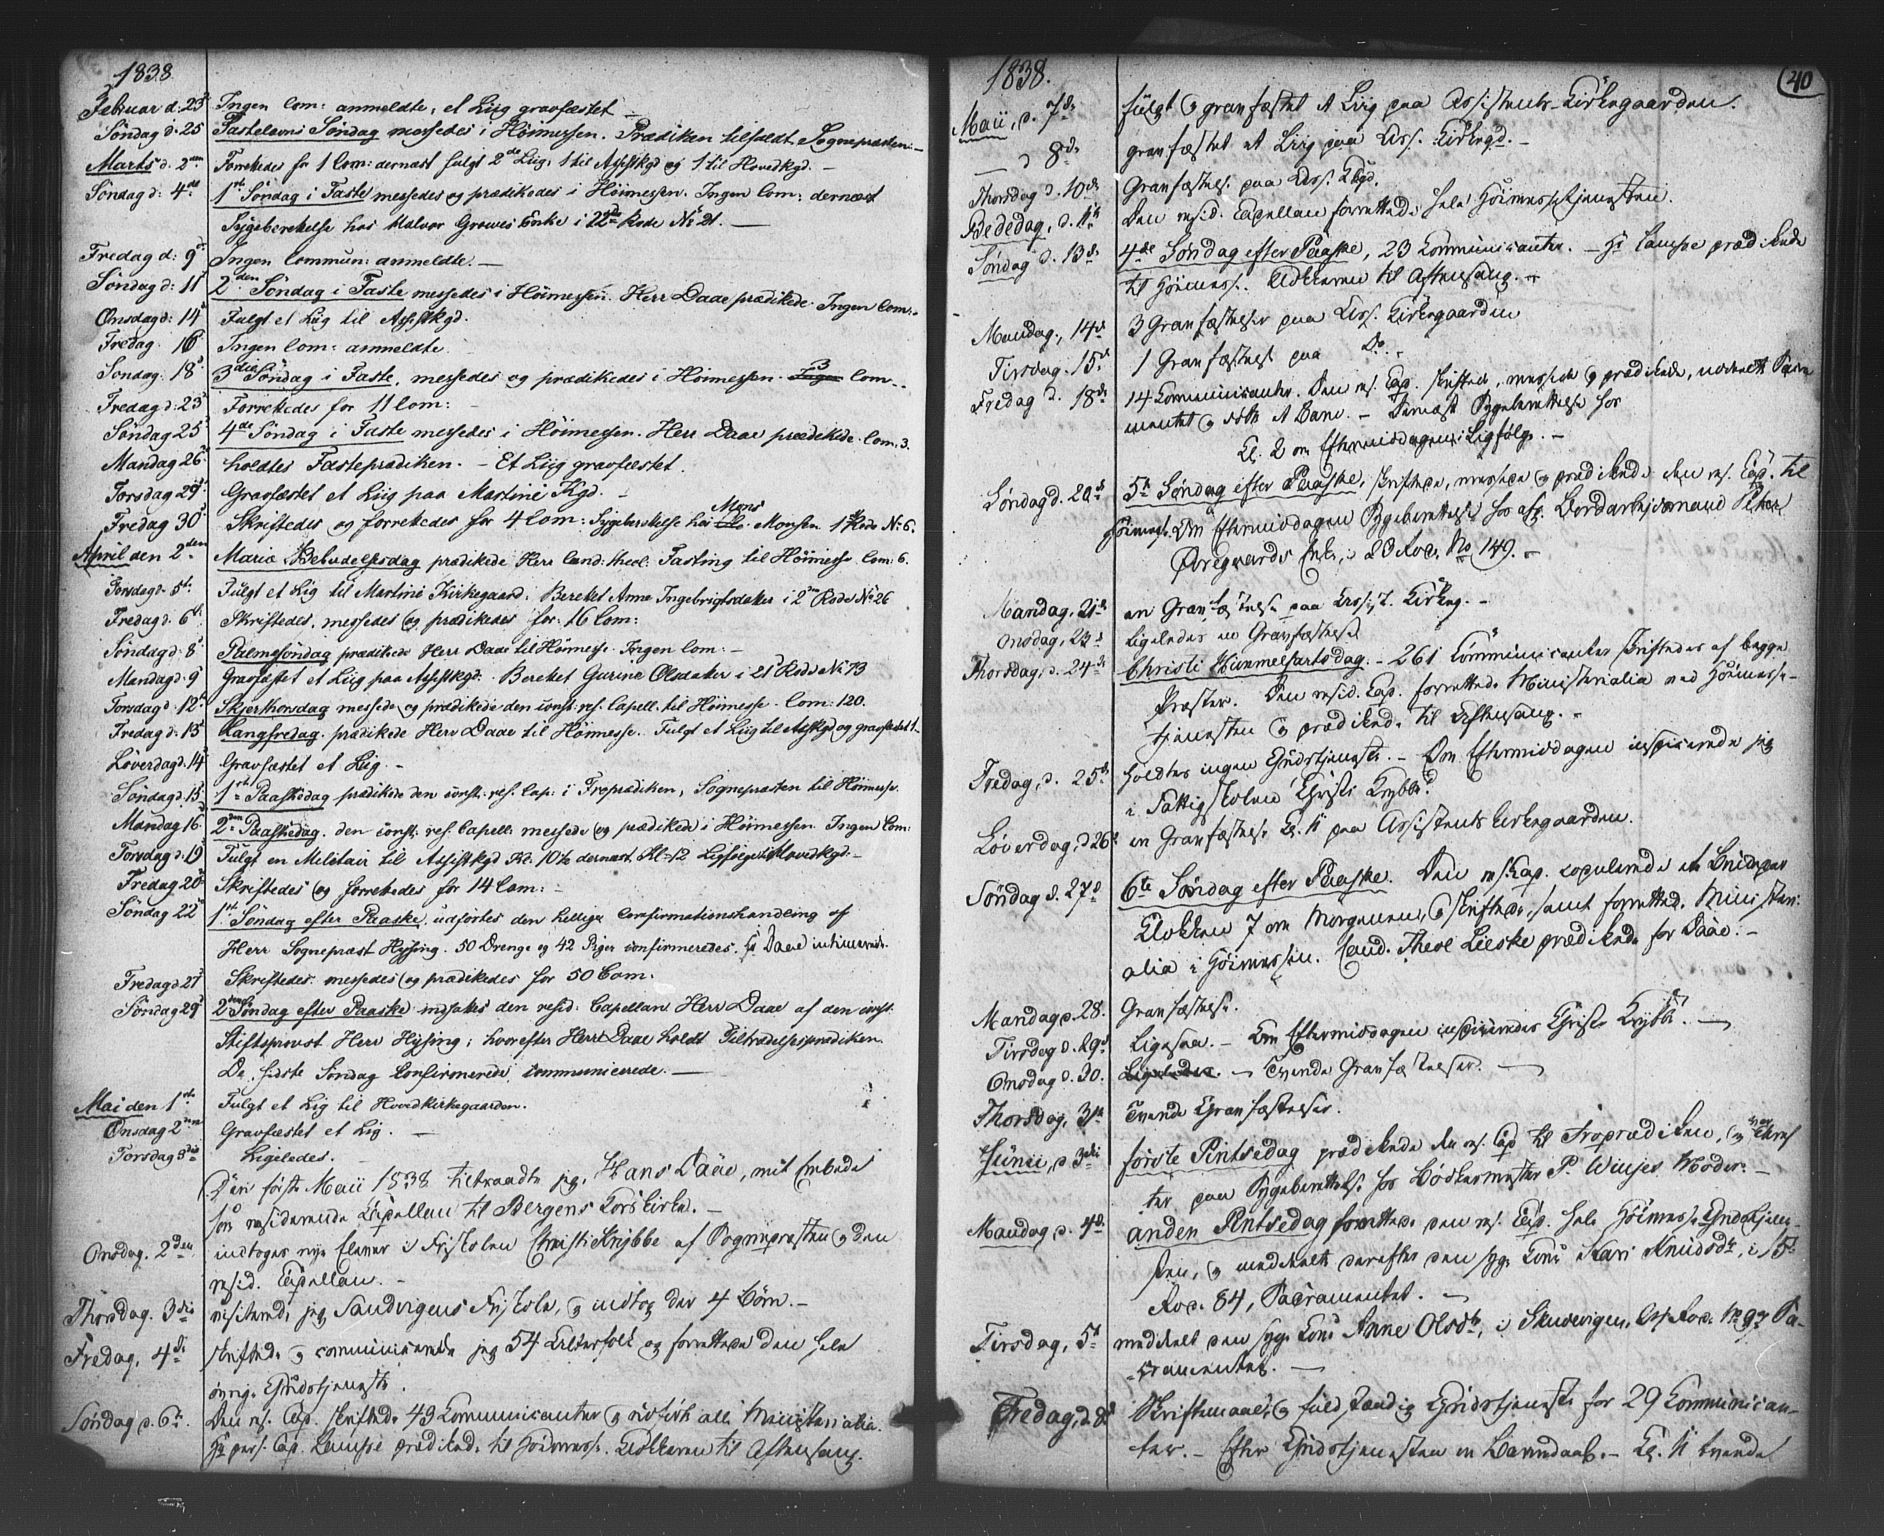 1838
Februar d: 23d Ingen Com: anmeldte, et Liig gravfæstet.
Søndag d: 25 Fastelavns Søndag messedes i Høimessen. Prædiken tilfaldt Sognepræsten.
Marts d: 2den Forrettedes for 1 Com: dernæst fulgt 2de Liig, 1 til Assistkgd og 1 til Hovedkgd.
Søndag d: 4de 1ste Søndag i Faste messedes og prædikedes i Høimessen. Ingen Com: dernæst
Sygeberettelse hos Halvor Growes Enke i 22de Rode No 21.
Fredag d: 9de Ingen Commun: anmeldte.
Søndag d: 11 2den Søndag i Faste messedes i Høimessen. Herr Daae prædikede. Ingen Com:
Onsdag d: 14 Fulgt et Liig til Assistkgd.
Fredag. 16 Ingen Com: anmeldte.
Søndag. 18 3die Søndag i Faste, messedes og prædikedes i Høimessen. 3 Com.
Fredag d: 23 Forrettedes for 11 Com:
Søndag 25 4de Søndag i Faste messedes i Høimessen. Herr Daae prædikede. Com: 3.
Mandag 26 holdtes Fasteprædiken. - Et Liig gravfæstet.
Torsdag 29 Gravfæstet et Liig paa Martini Kgd.
Fredag 30 Skriftedes og forrettedes for 4 Com: Sygeberettelse hos Mons Monsen 1ste Rode No 6.
April den 2den Mariæ Bebudelsesdag prædikede Herr Cand: theol: Fasting til Høimesse Com: 6.
Torsdag d. 5te Fulgt et Lig til Martini Kirkegaard. Berettet Anna Ingebrigtsdatter i 2den Rode No 26
Fredag d: 6te Skriftedes, messedes og prædikedes for 16 Com:
Søndag d: 8 Palmesøndag prædikede Herr Daae til Høimesse. Ingen Com:
Mandag d: 9 Gravfæstet et Liig paa Assistkgd. Berettet Gurine Olsdatter i 21 Rode No 73
Torsdag d: 12te Skjerthorsdag messede og prædikede den const: res. Capell: til Høimesse. Com: 120.
Fredag d: 13 Langfredag prædikede Herr Daae til Høimesse. Fulgt et Liig til Assistkgd og gravfæstet 1.
Løverdag d. 14 Gravfæstet et Liig.
Søndag d. 15 1ste Paaskedag prædikede den const: res. Cap: i Froprædiken, Sognepræsten til Høimesse.
Mandag 16 2den Paaskedag. den const: res. Capell: messede og prædikede i Høimessen. Ingen Com:
Torsdag d: 19 Fulgt en Militair til Assistkgd Kl: 10½ dernæst Kl: 12 Ligfølge til Hovedkgd.
Fredag 20 Skriftedes og forrettedes for 14 Com:
Søndag 22 1ste Søndag efter Paaske, udførtes den hellige Confirmationshandling af
Herr Sognepræst Hysing. 50 Drenge og 42 Piger confirmeredes. Hr Daae intimerede.
Fredag 27 Skriftedes messedes og prædikedes for 50 Com.
Søndag 29 2den Søndag efter Paaske indsattes den resid: Capellan Herr Daae af den const:
Stiftsprovst Herr Hysing; hvorefter Herr Daae holdt Tiltrædelsesprædiken.
De sidste Søndag confirmerede communicerede.
Mai den 1ste Fulgt et Lig til Hovedkirkegaarden.
Onsdag 2den Gravfæstet et Lig.
Torsdag 3die Ligeledes.
Den første Maii 1838 tiltraadte jeg, Hans Daae, mit Embede
som residerende Capellan til Bergens Korskirke.
Onsdag. 2den indtoges nye Elever i Friskolen Christi Krybbe af Sognepræsten og den
resid. Capellan.
Thorsdag. 3die visiterede jeg Sandvigens Friskole, og indtog der 4 Børn.
Fredag, 4de skriftede og communicerede jeg 54 Alterfolk og forrettede den hele
øvrige Gudstjeneste.
Søndag d. 6te Den res. Cap. skriftede 43 Kommunicanter og udførte alle Ministerialia.
Hr pers. Cap. Lampe prædikede til Høimesse. Klokkeren til Aftensang.
1838. 40
Maii, d. 7de fulgt og gravfæstet et Liig paa Assistents-Kirkegaarden.
d 8de gravfæstet et Liig paa Ass. Kirkegd.
Thorsdag d. 10de Gravfæstelse paa Ass. Kkgd.
Bededag d. 11te Den resid. Capellan forrettede hele Høimessetjenesten.
Søndag d. 13de 4de Søndag efter Paaske, 23 Communicanter. - Hr Lampe prædikede
til Høimesse. Klokkeren til Aftensang.
Mandag, 14de 3 Gravfæstelser paa Ass. Kirkegaarden
Tirsdag. 15de 1 Gravfæstelse paa Do.
Fredag d. 18de 14 Kommunicanter. Den res. Cap. skriftede, messede og prædikede, uddeelte Sacra-
mentet og døbte et Barn. - Dernæst Sygeberettelse hos
Kl. 2 om Eftermiddagen: Ligfølge.
Søndag d. 20de 5te Søndag efter Paaske, skriftede, messede og prædikede den res. Cap. til
Høimesse. Om Eftermiddagen Sygeberettelse hos afg. Bordarbejdermand Peter
Øregaards Enke, i 20 Rode, No 149.
Mandag, 21de en Gravfæstelse paa Assist. Kirkeg.
Onsdag, 23de ligeledes en Gravfæstelse
Thorsdag, d. 24de Christi Himmelfartsdag. - 261 Communicanter skriftedes af begge
Præster. Den resid. Cap. forrettede Ministerialia ved Høimesse-
tjenesten og prædikede til Aftensang.
Fredag, d. 25de holdtes ingen Gudstjeneste. - Om Eftermiddagen inspicerede jeg
i Fattigskolen Christi Krybbe.
Løverdag, d 26de en Gravfæstelse Kl. 11 paa Assistents Kirkegaarden.
Søndag d. 27de 6te Søndag efter Paaske. Den res. Cap. copulerede et Brudepar
Klokken 7 om Morgenen, og skriftede, samt forrettede Ministeri-
alia i Høimessen. Cand. Theol Lieske prædikede for Daae.
Mandag d. 28. Gravfæstelse.
Tirsdag d. 29de Ligesaa. - Om Eftermiddagen inspiceredes Christi Krybbe.
Onsdag d. 30. Tvende Gravfæstelser.
Thorsdag, 31te Tvende Gravfæstelser.
Junii, d 3die første Pintsedag prædikede den res. Cap til Froprædiken, og var Efter-
ter paa Sygeberettelse hos Bødkermester P. Winjes Moder.
Mandag d. 4de anden Pintsedag forrettede den res. Cap. hele Høimesse Gudstjene-
sten, og meddeelte derefter den syge Kone Kari Knudsdtr, i 15de
Rode. 84, Sacramentet.
Tirsdag, 5te meddeelt den syge Kone Anne Olsdtr, i Skudevigen, Rode No 97 Sa-
cramentet.
Fredag, d. 8de Skriftemaal, og fuldstændig Gudstjeneste for 29 Communican-
ter. - Efter Gudstjenesten en Barnedaab. - Kl. 11 tvende